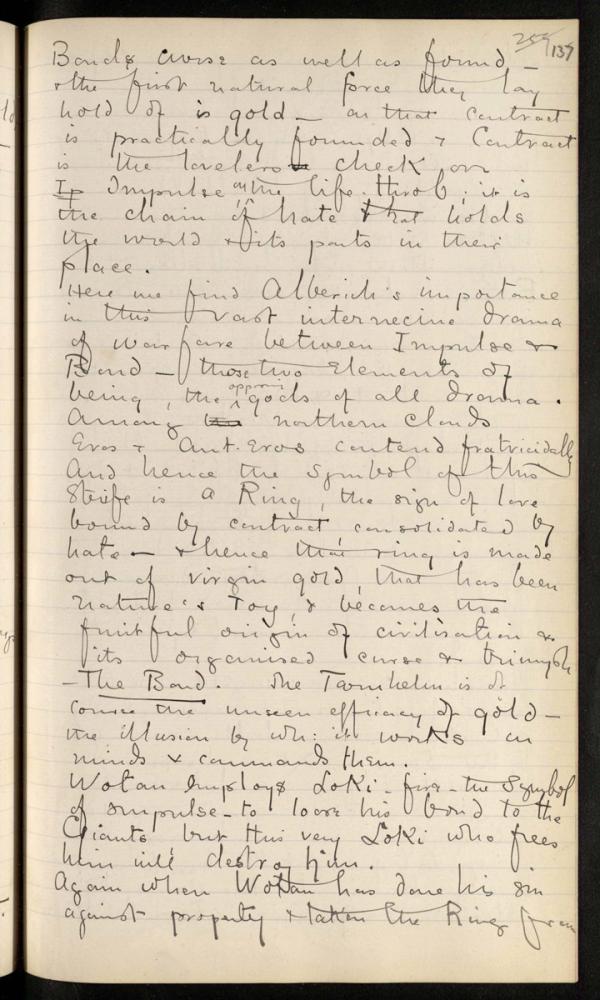 259 137
Bonds curse as well as found —
& the first natural force they lay
hold of is gold — on that contract
is practically founded & Contract
is the lovelers check on
Impulse on the life-throb; it is
the chain of hate that holds
the world & its parts in their
place.
Here we find Alberich's importance
in this vast internecine drama
of warfare between Impulse &
Bond — those two Elements of
being, the opposing gods of all drama.
Among northern clouds
Eros & Ant-Eros contend fratricidally
And hence the Symbol of this
Strife is a Ring, the sign of love
bound by contract, consolidated by
hate — & hence that ring is made
out of virgin gold, that has been
nature's Toy, & becomes the
fruitful origin of civilisation &
its organised curse & triumph
— The Bond. The Tarnhelm is of
course the unseen efficacy of gold —
the illusion by wh: it works on
minds & commands them.
Wotan employs Loki - fire - the Symbol
of Impulse - to loose his bond to the
Giants but this very Loki who frees
him will destroy him.
Again when Wotan has done his sin
against property & taken the Ring from